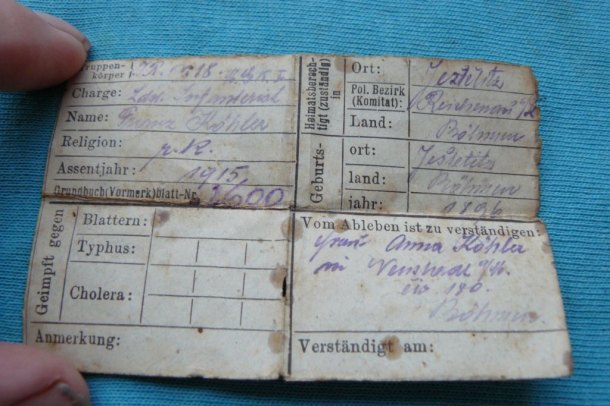 Truppenkörper J.R. 18
Charge: Ldst. Infanterist
Name: Franz Köhler
Religion: r. K.
Assentjahr: 1915
Grundbuch(Vormerk)blatt-Nr. 600
Heimatsberechtigt (zuständig) in
Ort: Jestetitz
Pol. Bezirk (Komitat):
Land: Böhmen
Geburts-
ort: Jestetitz
land: Böhmen
jahr: 1896
Geimpft gegen
Blattern:
Typhus:
Cholera:
Anmerkung:
Vom Ableben ist zu verständigen:
Frau Anna Köhler
in
No 190
Böhmen
Verständigt am: